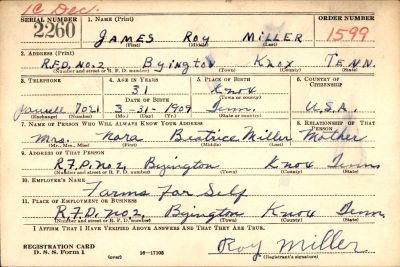 1C Dec.
SERIAL NUMBER 1. NAME (Print) ORDER NUMBER
2260 JAMES ROY MILLER 1599
(First) (Middle) (Last)
2. ADDRESS (Print)
R.F.D. No. 2 Byington Knox TENN.
(Number and street or R. F. D. number) (Town) (County) (State)
3. TELEPHONE 4. AGE IN YEARS 5. PLACE OF BIRTH 6. COUNTRY OF CITIZENSHIP
31 Knox
DATE OF BIRTH (Town or county)
7021 3-31-1909 Tenn. U.S.A.
(Exchange) (Number) (Mo.) (Day) (Yr.) (State or country)
7. NAME OF PERSON WHO WILL ALWAYS KNOW YOUR ADDRESS 8. RELATIONSHIP OF THAT PERSON
Mrs. Nora Beatrice Miller Mother
(Mr., Mrs., Miss) (First) (Middle) (Last)
9. ADDRESS OF THAT PERSON
R.F.D. No 2, Byington Knox Tenn
(Number and street or R. F. D. number) (Town) (County) (State)
10. EMPLOYER'S NAME
Farms For Self
11. PLACE OF EMPLOYMENT OR BUSINESS
R.F.D. No. 2, Byington Knox Tenn
(Number and street or R. F. D. number) (Town) (County) (State)
I AFFIRM THAT I HAVE VERIFIED ABOVE ANSWERS AND THAT THEY ARE TRUE.
Roy Miller
REGISTRATION CARD
D. S. S. Form 1 (over) 16—17105 (Registrant's signature)